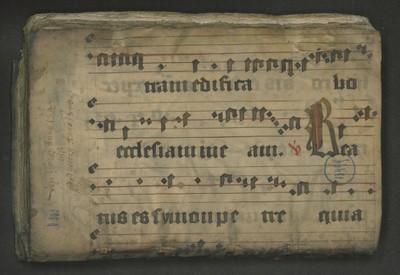 tram edifica bo
ecclesiam me am. Bea
tus es symon pe tre quia